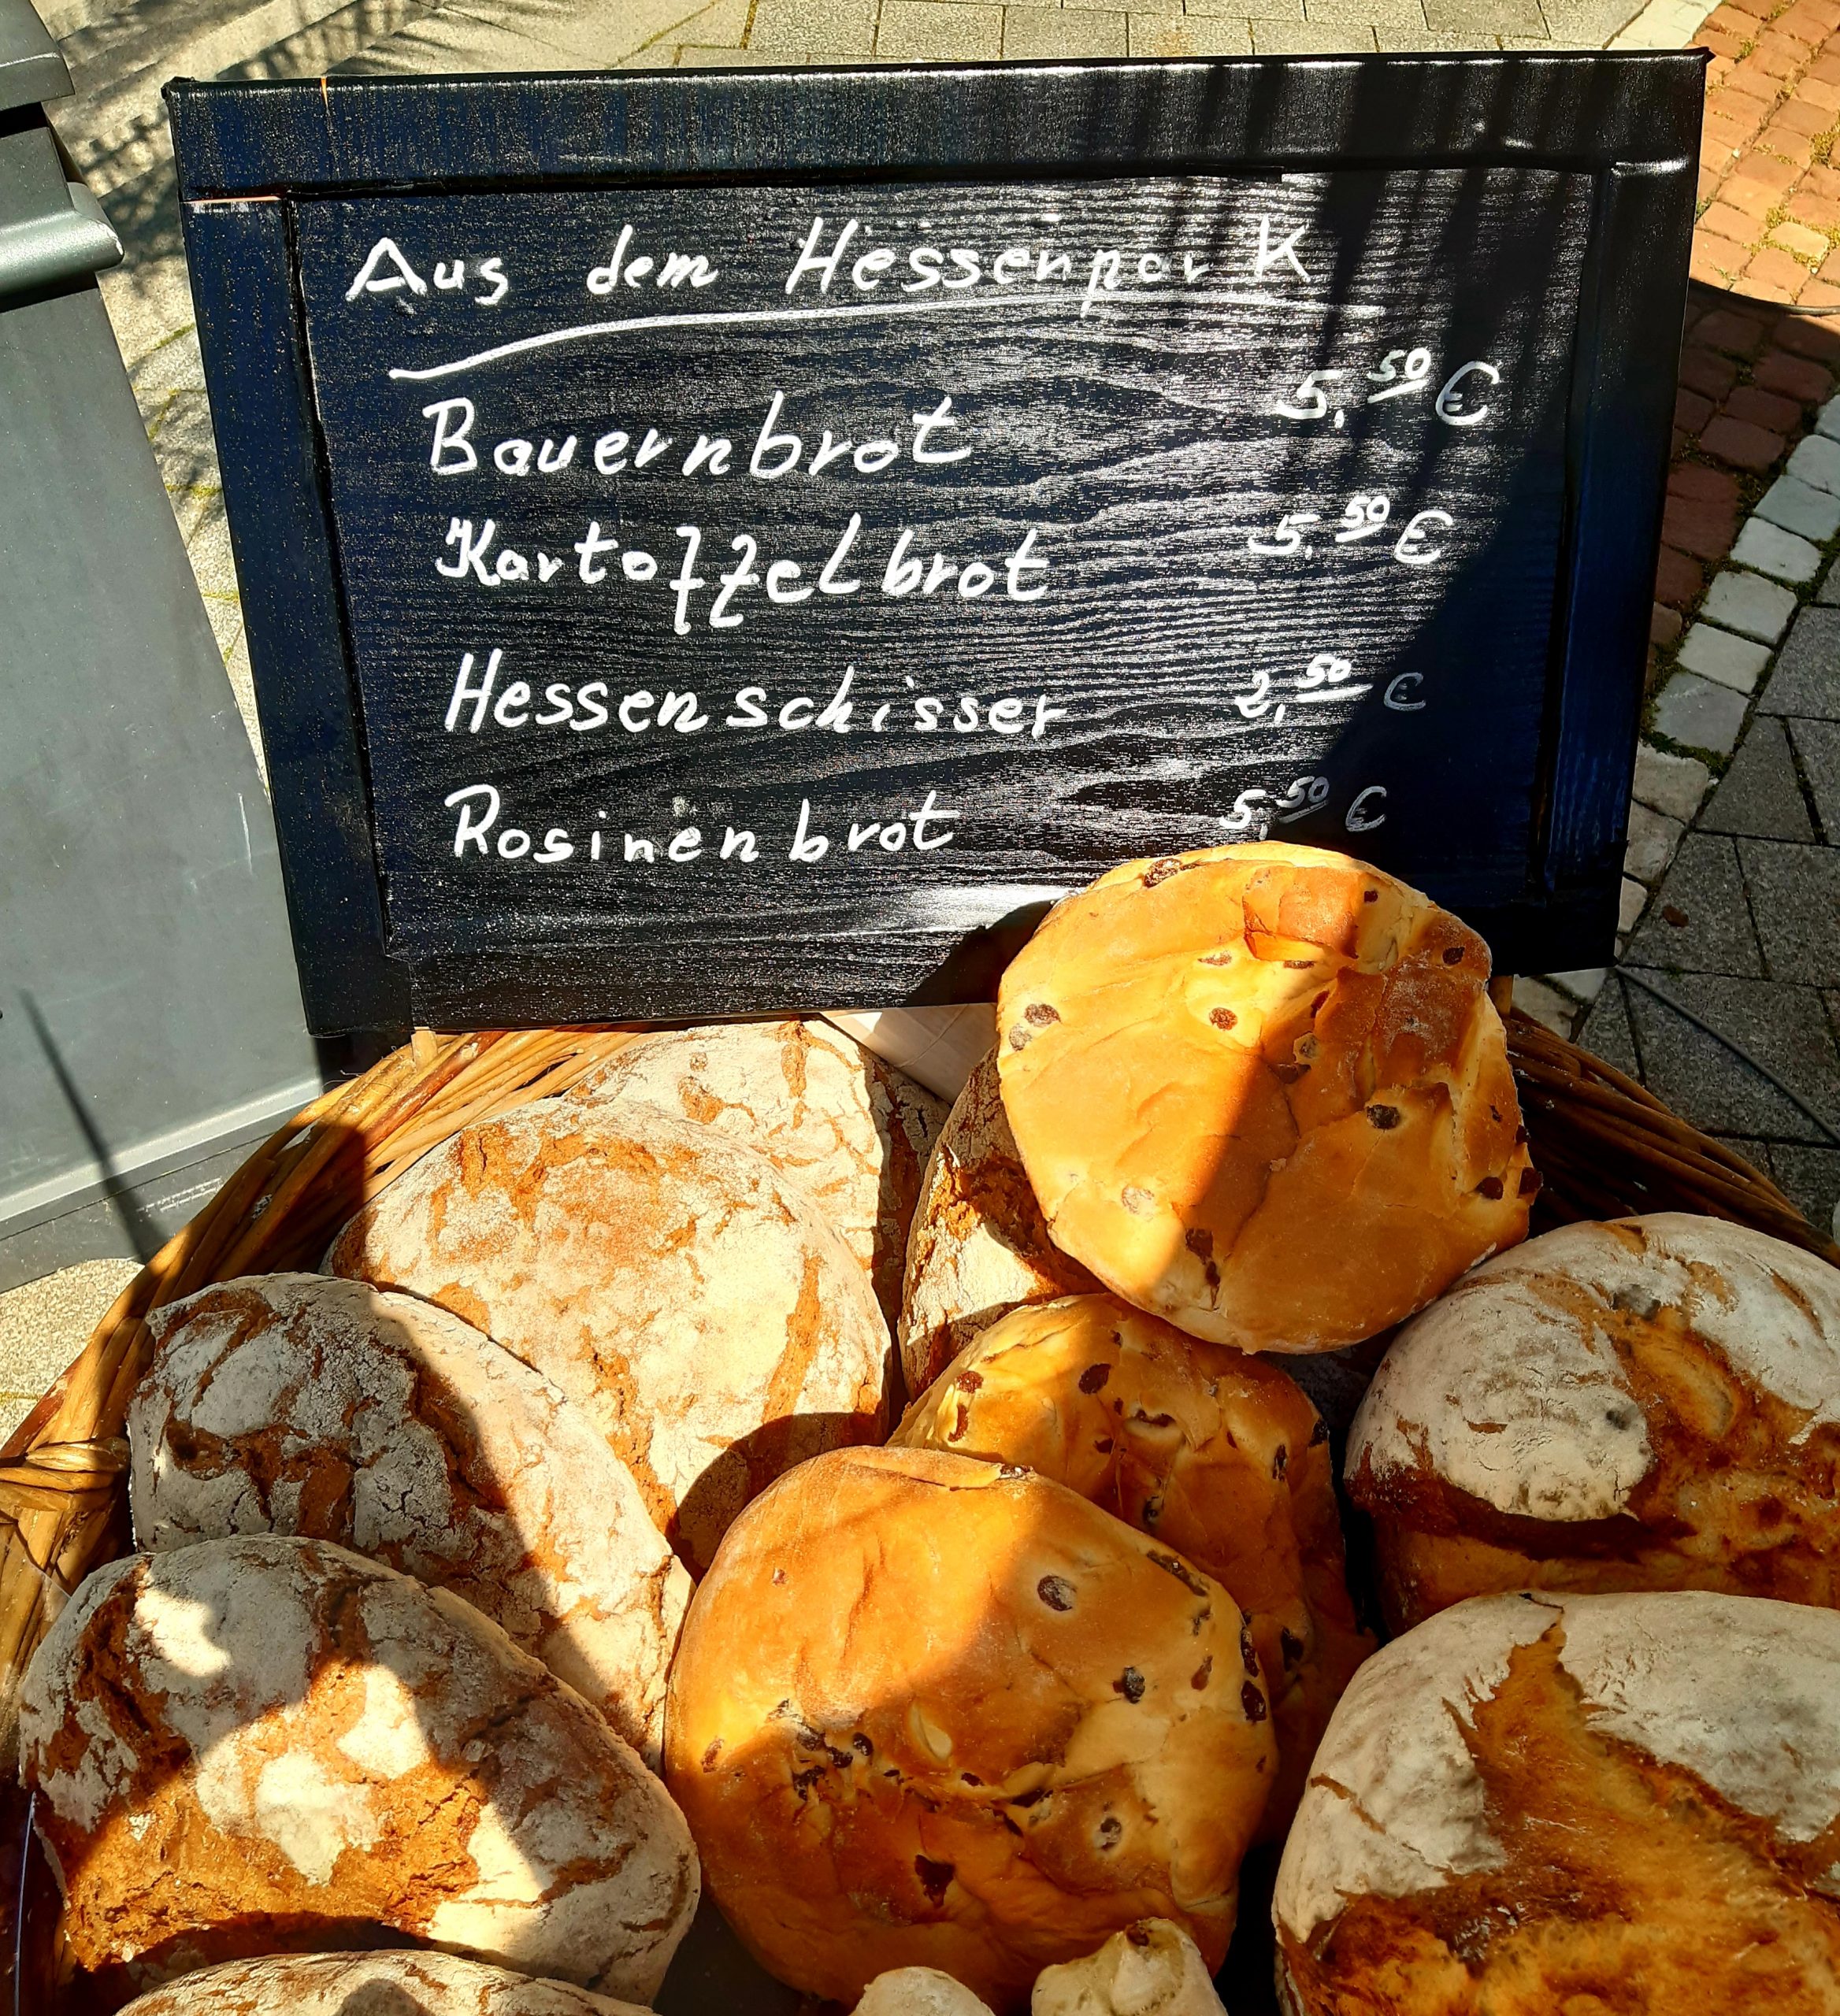 Aus dem Hessenpark
Bauernbrot 5,50 €
Kartoffelbrot 5,50 €
Hessenschisser 2,50 €
Rosinenbrot 5,50 €